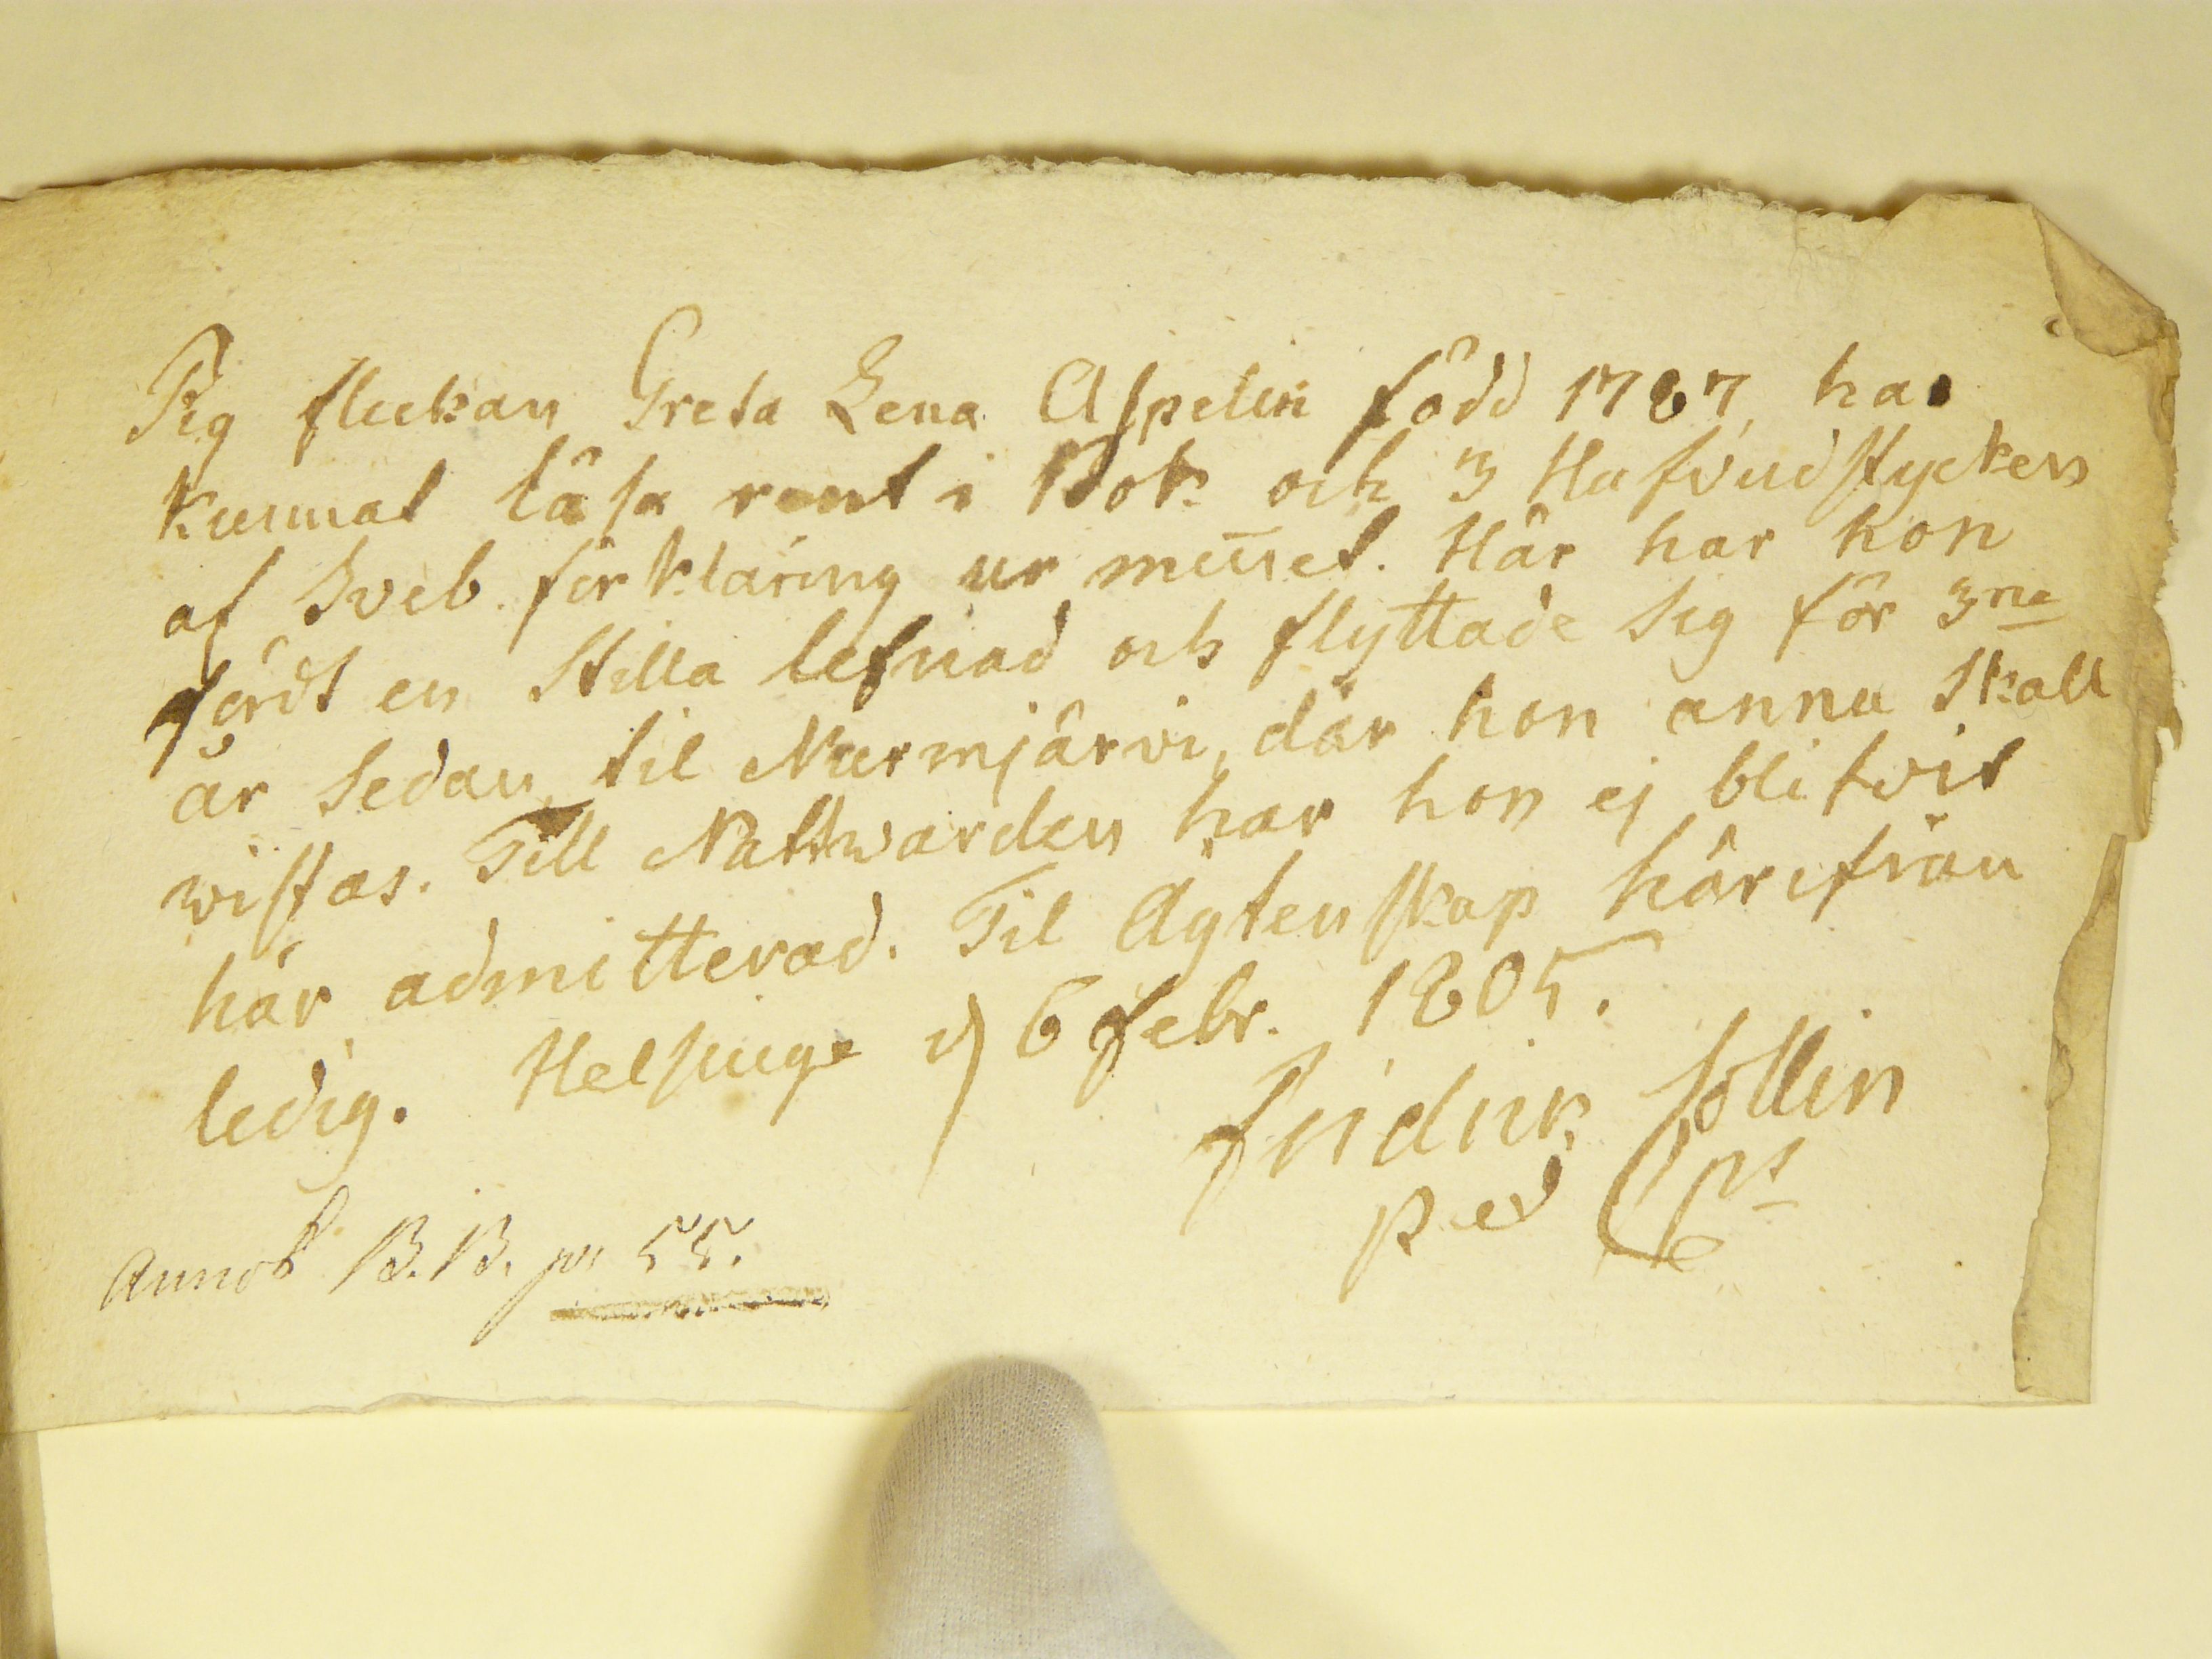 Pig flickan Greta Lena Aspelin född 1787, har
kunnat läsa rent i Bok och 3 Hufvudstycken
af Sveb. förklaring ur minnet. Här har hon
fördt en stilla lefnad och flyttade sig för 3ne
år sedan, til Nurmjärvi, där hon annu skall
wistas. Till Nattwarden har hon ej blifvit
här admitterad. Til Ägtenskap härifrån
ledig. Helsinge d 6 Febr. 1805.
Fridric Sollin
Ped
Annot B.B. p. 55.